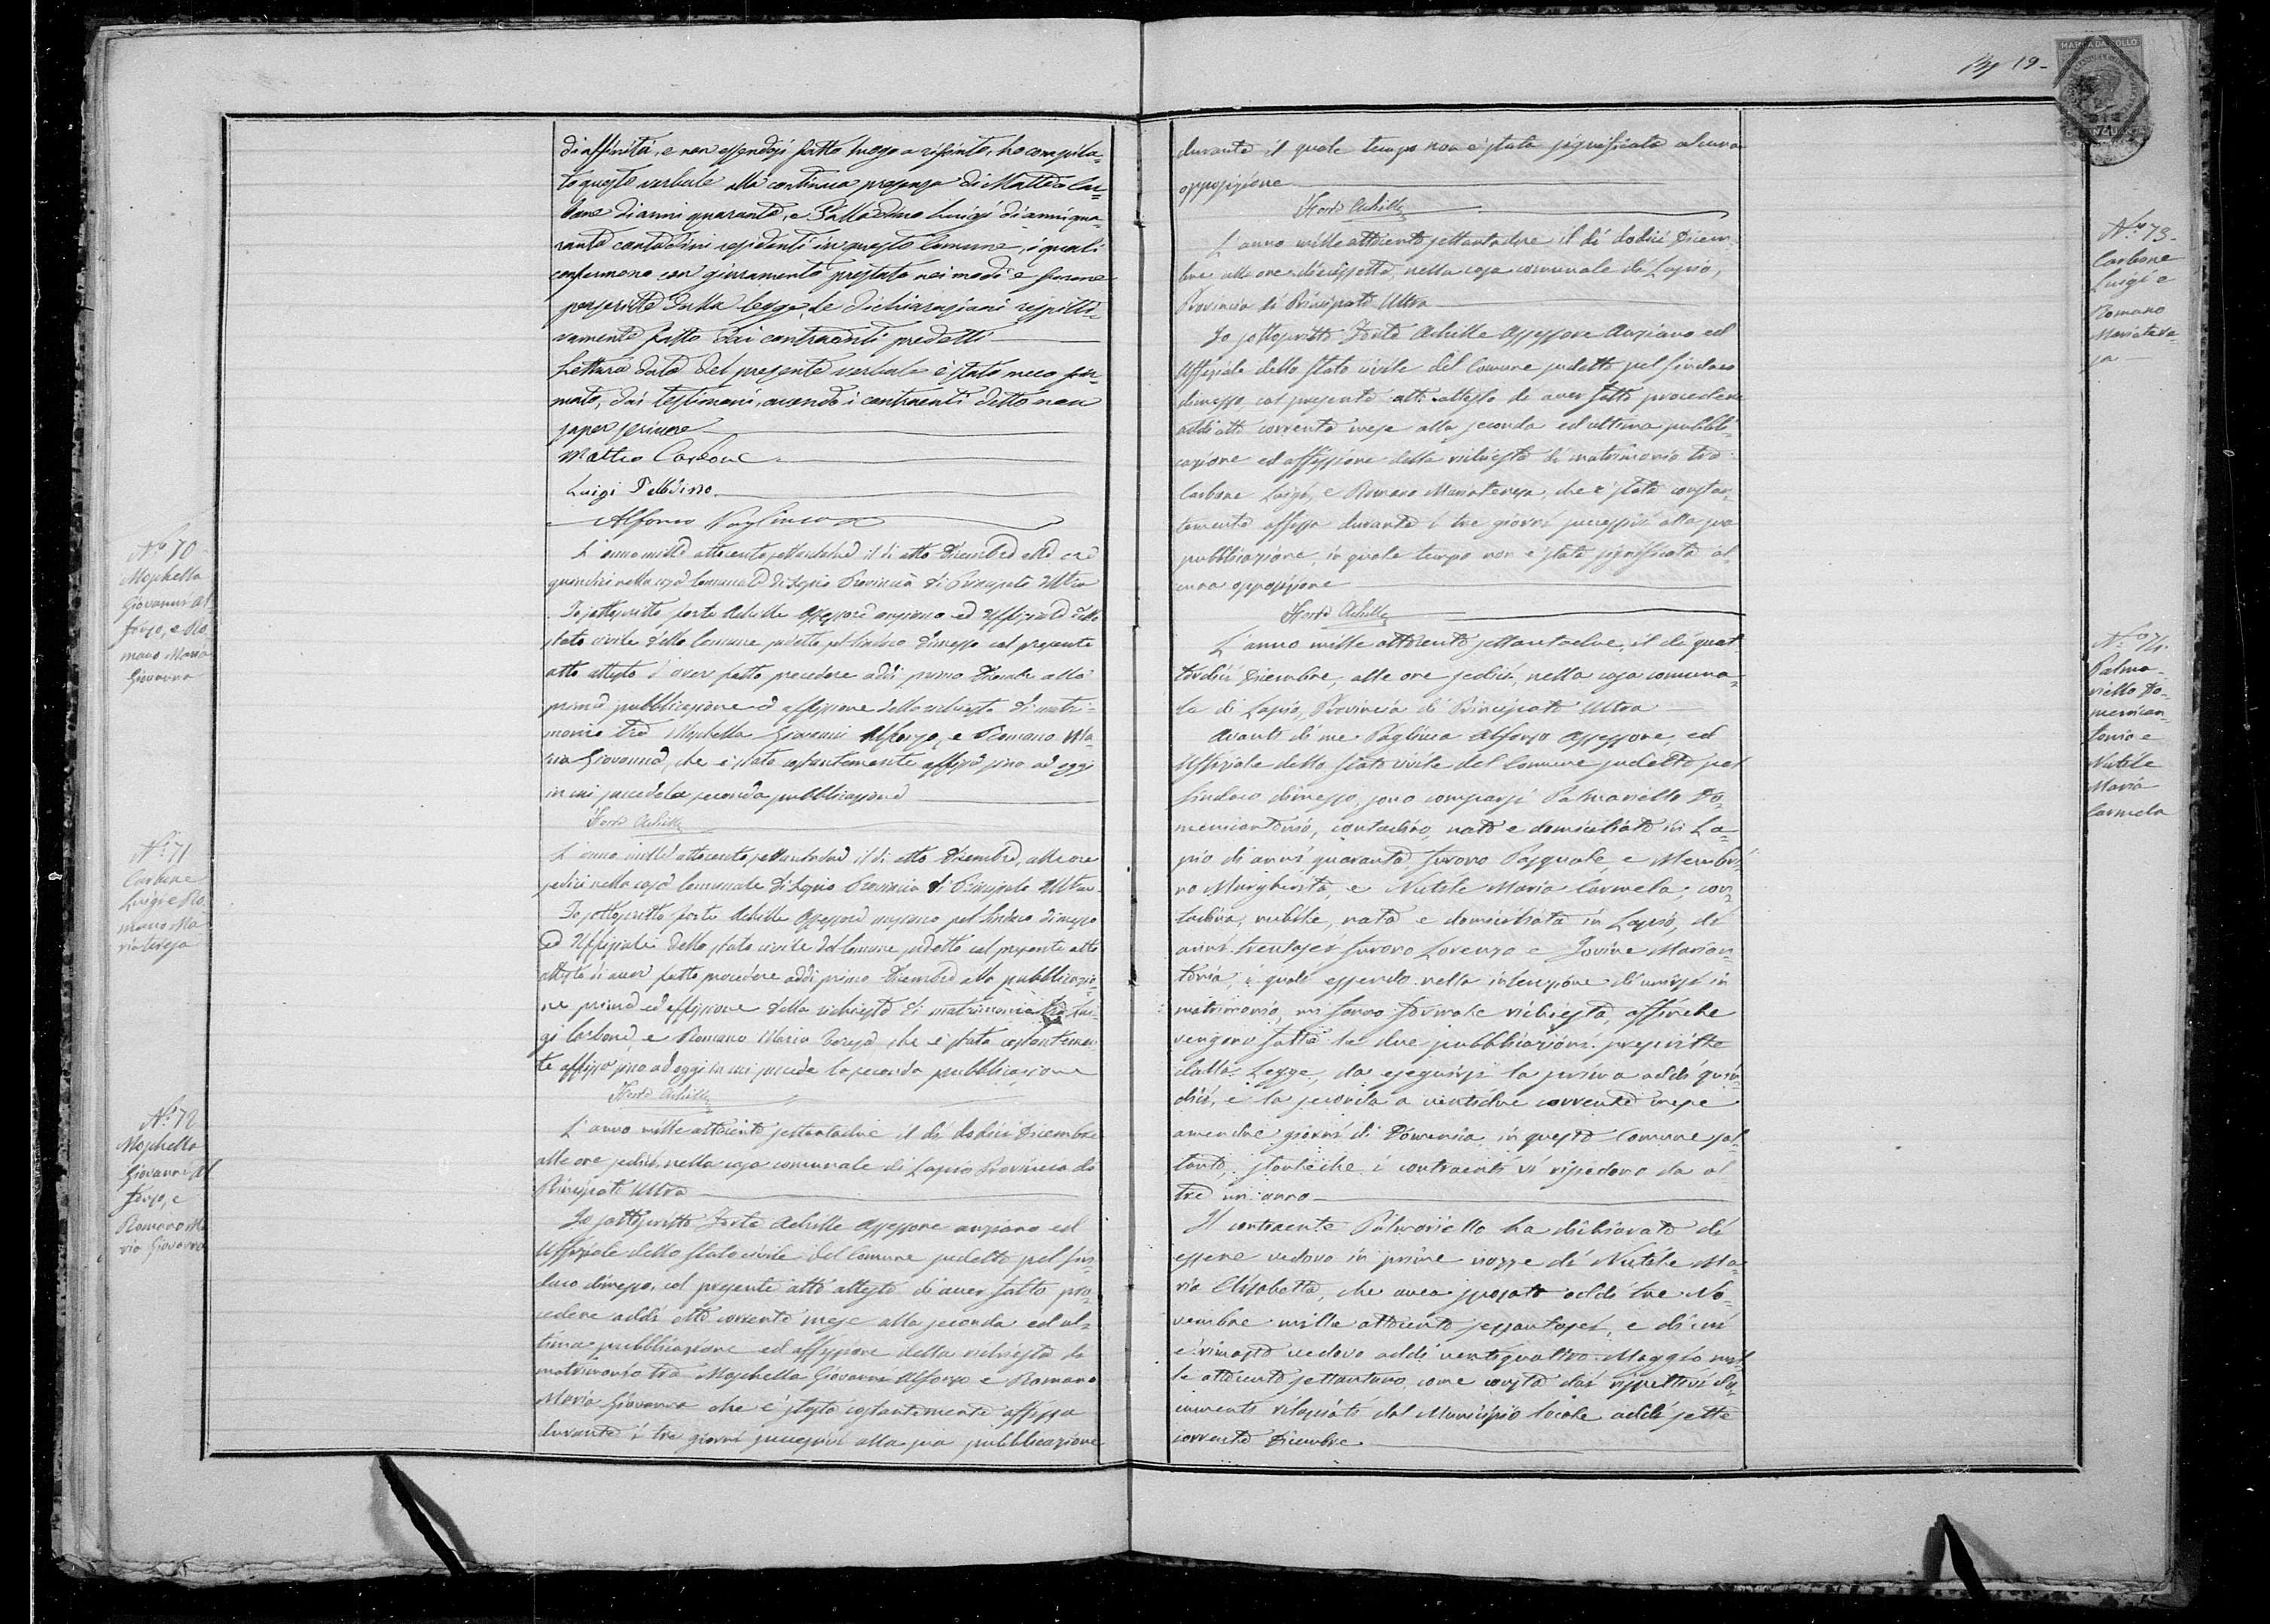 di affinità, e non essendosi fatto luogo a rifiuto, ho compila-
to questo verbale alla continua presenza di Matteo Car-
bone di anni quaranta, e Palladino Luigi di anni qua-
ranta contadini residenti in questo Comune, i quali
confermano con giuramento prestato nei modi e forme
prescritte dalla legge, le dichiarazioni rispetti-
vamente fatte dai contraenti predetti
Lettura data del presente verbale è stato meco fir-
mato, dai testimoni, avendo i contraenti detto non
saper scrivere
Matteo Carbone
Luigi Palladino
Alfonso Pagliuca
No 70
Moschella
Giovanni Al-
fonso, e Ro
mano Maria
Giovanna
L'anno mille ottocento settantadue il dì otto Dicembre alle ore
quindici nella casa Comunale di Lapio Provincia di Principato Ultra
Io sottoscritto Forte Achille Assessore anziano ed Uffiziale dello
stato civile dello Comune sudetto pel Sindaco dimesso col presente
atto attesto d'aver fatto procedere addì primo Dicembre alla
prima pubblicazione ed affissione della richiesta di matri-
monio tra Moschella Giovanni Alfonso, e Romano Ma-
ria Giovanna, che è stata costantemente affissa sino ad oggi
in cui succede la seconda pubblicazione
Forte Achille
No 71
Carbone
Luigi e Ro
mano Ma
ria Teresa
L'anno mille ottocento settantadue il dì otto Dicembre, alle ore
sedici nella casa Comunale di Lapio Provincia di Principato Ultra
Io sottoscritto Forte Achille Assessore anziano pel Sindaco dimesso
ed Uffiziale dello stato civile del Comune sudetto col presente atto
attesto di aver fatto procedere addì primo Dicembre alla pubblicazio-
ne prima ed affissione della richiesta di matrimonio tra Lui-
gi Carbone, e Romano Maria Teresa che è stata costantemen-
te affissa sino ad oggi in cui succede la seconda pubblicazione
Forte Achille
No 72
Moschella
Giovanni Al
fonso, e
Romano Ma
ria Giovanna
L'anno mille ottocento settantadue il dì dodici Dicembre
alle ore sedici, nella casa comunale di Lapio Provincia di
Principato Ultra
Io sottoscritto Forte Achille Assessore anziano ed
Uffiziale dello stato civile del Comune sudetto pel Sin-
daco dimesso, col presente atto attesto di aver fatto pro-
cedere addì otto corrente mese alla seconda ed ul-
tima pubblicazione ed affissione della richiesta di
matrimonio tra Moschella Giovanni Alfonso e Romano
Maria Giovanna che è stata costantemente affissa
durante i tre giorni successivi alla sua pubblicazione
19
MARCA DA BOLLO
durante il quale tempo non è stata significata alcuna
opposizione
Forte Achille
No 73
Carbone
Luigi e
Romano
Maria Tere-
sa
L'anno mille ottocento settantadue il dì dodici Dicem-
bre alle ore diciassette, nella casa comunale di Lapio,
Provincia di Principato Ultra
Io sottoscritto Forte Achille Assessore Anziano ed
Uffiziale dello stato civile del Comune sudetto pel Sindaco
dimesso, col presente atto attesto di aver fatto procedere
addì otto corrente mese alla seconda ed ultima pubbli-
cazione ed affissione della richiesta di matrimonio tra
Carbone Luigi, e Romano Maria Teresa, che è stata costan-
temente affissa durante i tre giorni successivi alla sua
pubblicazione, in quale tempo non è stata significata al-
cuna opposizione
Forte Achille
No 74
Palma-
riello Do-
menican-
tonio e
Nutile
Maria
Carmela
L'anno mille ottocento settantadue, il dì quat-
tordici Dicembre, alle ore sedici, nella casa comuna-
le di Lapio, Provincia di Principato Ultra
Avanti di me Pagliuca Alfonso Assessore ed
Uffiziale dello stato civile del Comune sudetto pel
Sindaco dimesso, sono comparsi Palmariello Do-
menicantonio, contadino, nato e domiciliato in La-
pio di anni quaranta, furono Pasquale e Membri-
no Margherita, e Nutile Maria Carmela, con-
tadina, nubile, nata e domiciliata in Lapio, di
anni trentasei furono Lorenzo e Iovine Marian-
tonia, i quali essendo nella intenzione di unirsi in
matrimonio, mi fanno formale richiesta, affinché
vengano fatte le due pubblicazioni prescritte
dalla Legge, da eseguirsi la prima addì quin-
dici, e la seconda a ventidue corrente mese
amendue giorni di Domenica in questo Comune sol-
tanto, stanteché i contraenti vi risiedono da ol-
tre un anno
Il contraente Palmariello ha dichiarato di
essere vedovo in prime nozze di Nutile Ma-
ria Elisabetta, che avea sposato addì tre No-
vembre mille ottocento sessantasei, e di cui
è rimasto vedovo addì ventiquattro Maggio mil-
le ottocento settantuno, come consta dai rispettivi do-
cumenti rilasciati dal Municipio locale addì sette
corrente Dicembre